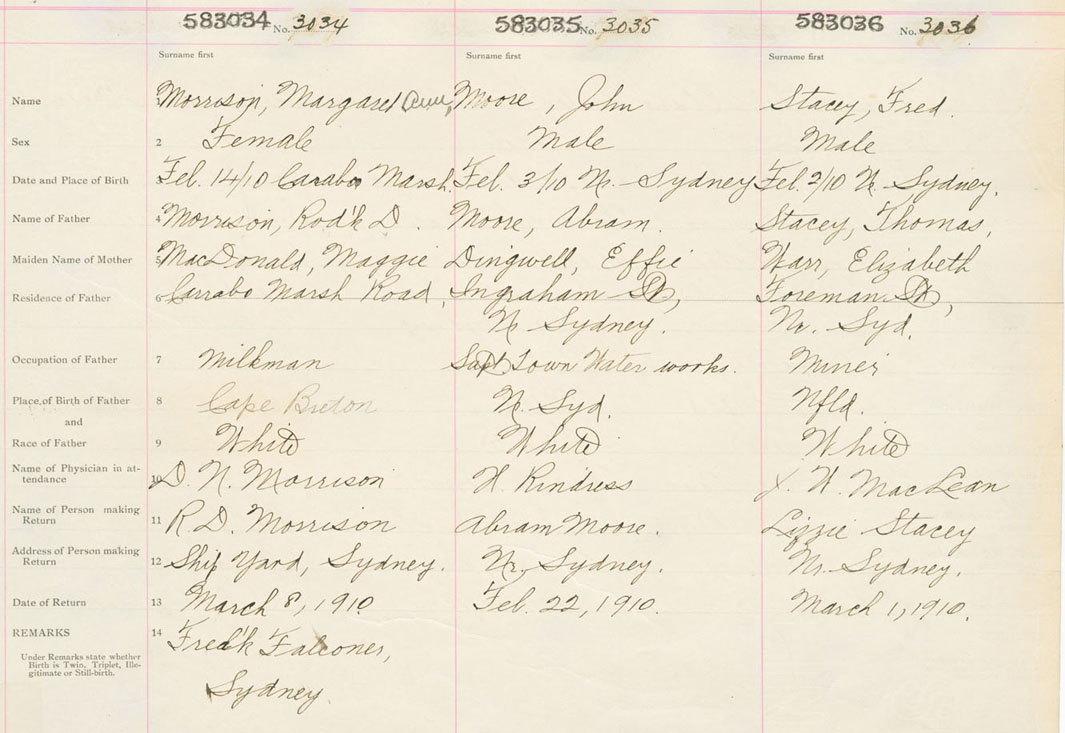 583034 No. 3034 583035 No. 3035 583036 No. 3036
Surname first Surname first Surname first
Name 1 Morrison, Margaret Ann, Moore, John Stacey, Fred.
Sex 2 Female Male Male
Date and Place of Birth Feb. 14/10 Carabo Marsh. Feb. 3/10 N. Sydney Feb. 2/10 N. Sydney.
Name of Father 4 Morrison, Rod'k D. Moore, Abram. Stacey, Thomas,
Maiden Name of Mother 5 MacDonald, Maggie Dingwell, Effie Harr, Elizabeth
Residence of Father 6 Carrabo Marsh Road, Ingraham St, Foreman St,
N Sydney. Nr. Syd.
Occupation of Father 7 Milkman Supt Town Water works. Miner
Place of Birth of Father 8 Cape Breton N. Syd. Nfld.
and
Race of Father 9 White White White
Name of Physician in at-
tendance 10 D. N. Morrison H. Rindress J. W. MacLean
Name of Person making
Return 11 R D. Morrison Abram Moore. Lizzie Stacey
Address of Person making
Return 12 Ship Yard, Sydney. Nr. Sydney. Nr. Sydney.
Date of Return 13 March 8, 1910 Feb. 22, 1910. March 1, 1910.
REMARKS 14 Fred'k Falconer,
Under Remarks state whether
Birth is Twin, Triplet, Ille-
gitimate or Still-birth.
Sydney.